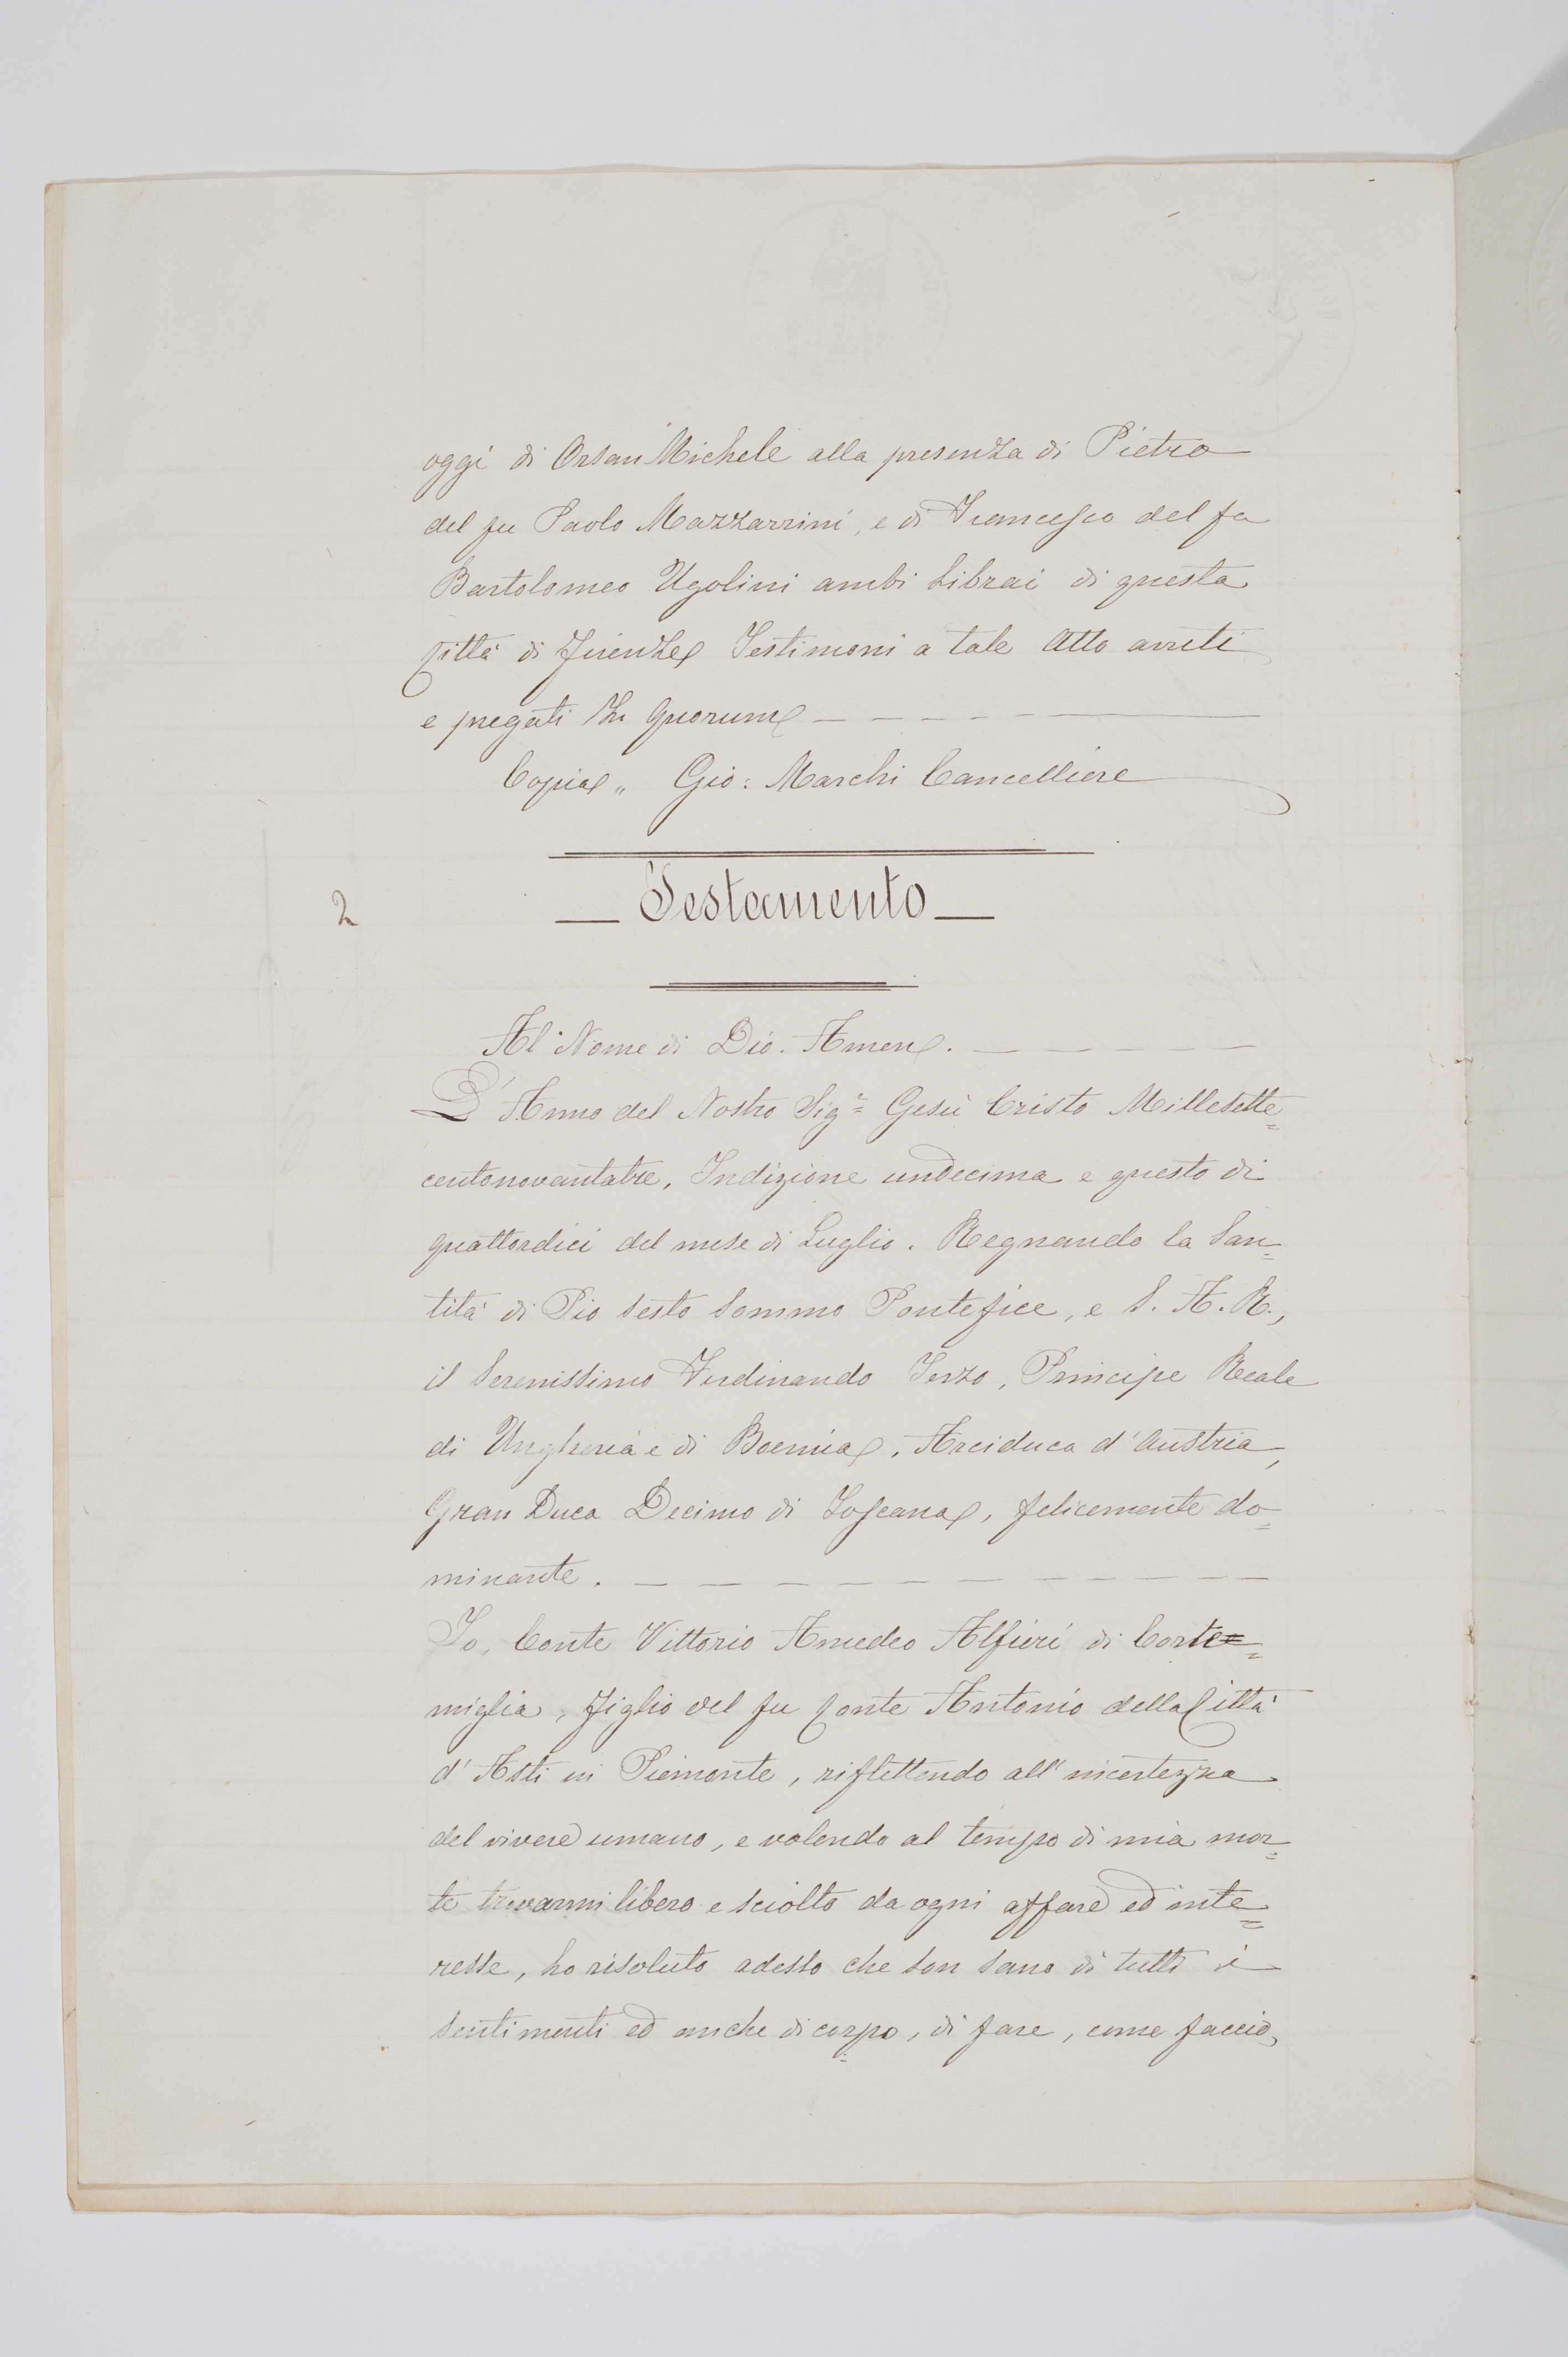 oggi di Orsan Michele alla presenza di Pietro
del fu Paolo Mazzarrini, e di Francesco del fu
Bartolomeo Ugolini ambi Librai di questa
Città di Firenze Testimoni a tale Atto avuti
e pregati In Quorum — — — — —
Copia „ Gio: Marchi Cancelliere
2
— Testamento —
Al Nome di Dio. Amen. — — — — —
L'Anno del Nostro Sig.r= Gesù Cristo Millesette=
centonovantatre, Indizione undecima e questo di
quattordici del mese di Luglio. Regnando la San=
tità di Pio Sesto Sommo Pontefice, e S. A. R.,
il Serenissimo Ferdinando Terzo, Principe Reale
di Ungheria e di Boemia, Arciduca d'Austria,
Gran Duca Decimo di Toscana, felicemente do=
minante. — — — — — — — — — —
Io, Conte Vittorio Amedeo Alfieri di Corte=
miglia, figlio del fu Conte Antonio della Città
d'Asti in Piemonte, riflettendo all'incertezza
del vivere umano, e volendo al tempo di mia mor=
te trovarmi libero e sciolto da ogni affare ed inte=
resse, ho risoluto adesso che son sano di tutti i
sentimenti ed anche di corpo, di fare, come faccio,